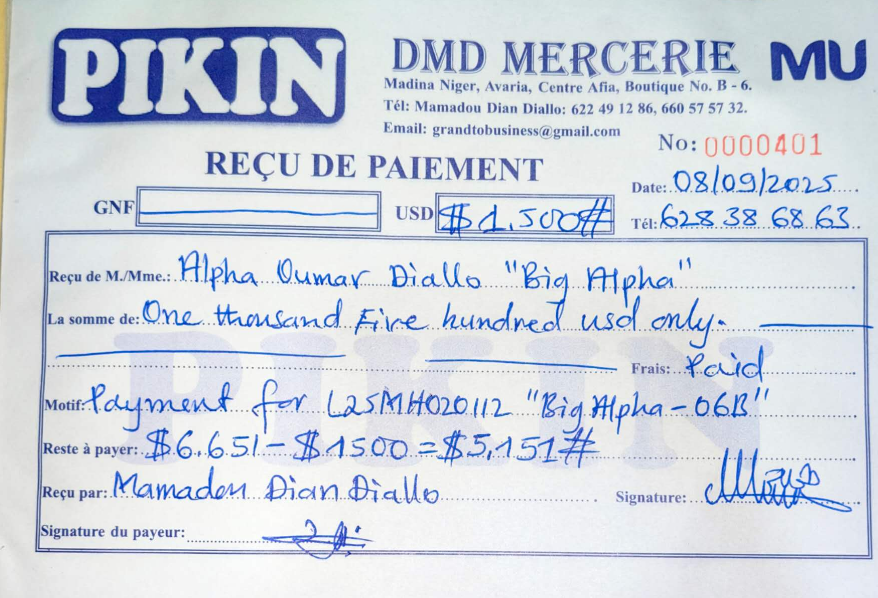 PIKIN
DMD MERCERIE MU
Madina Niger, Avaria, Centre Afia, Boutique No. B - 6.
Tél: Mamadou Dian Diallo: 622 49 12 86, 660 57 57 32.
Email: grandtobusiness@gmail.com
No: 0000401
REÇU DE PAIEMENT
Date: 08/09/2025
GNF USD $1.500#
Tél: 628 38 68 63
Reçu de M./Mme.: Alpha Oumar Diallo "Big Alpha"
La somme de: One thousand Five hundred usd only.
Frais: Paid
Motif: Payment for L25MH020112 "Big Alpha-06B"
Reste à payer: $6.651-$1500=$5,151#
Reçu par: Mamadou Dian Diallo Signature:
Signature du payeur:
PIKIN